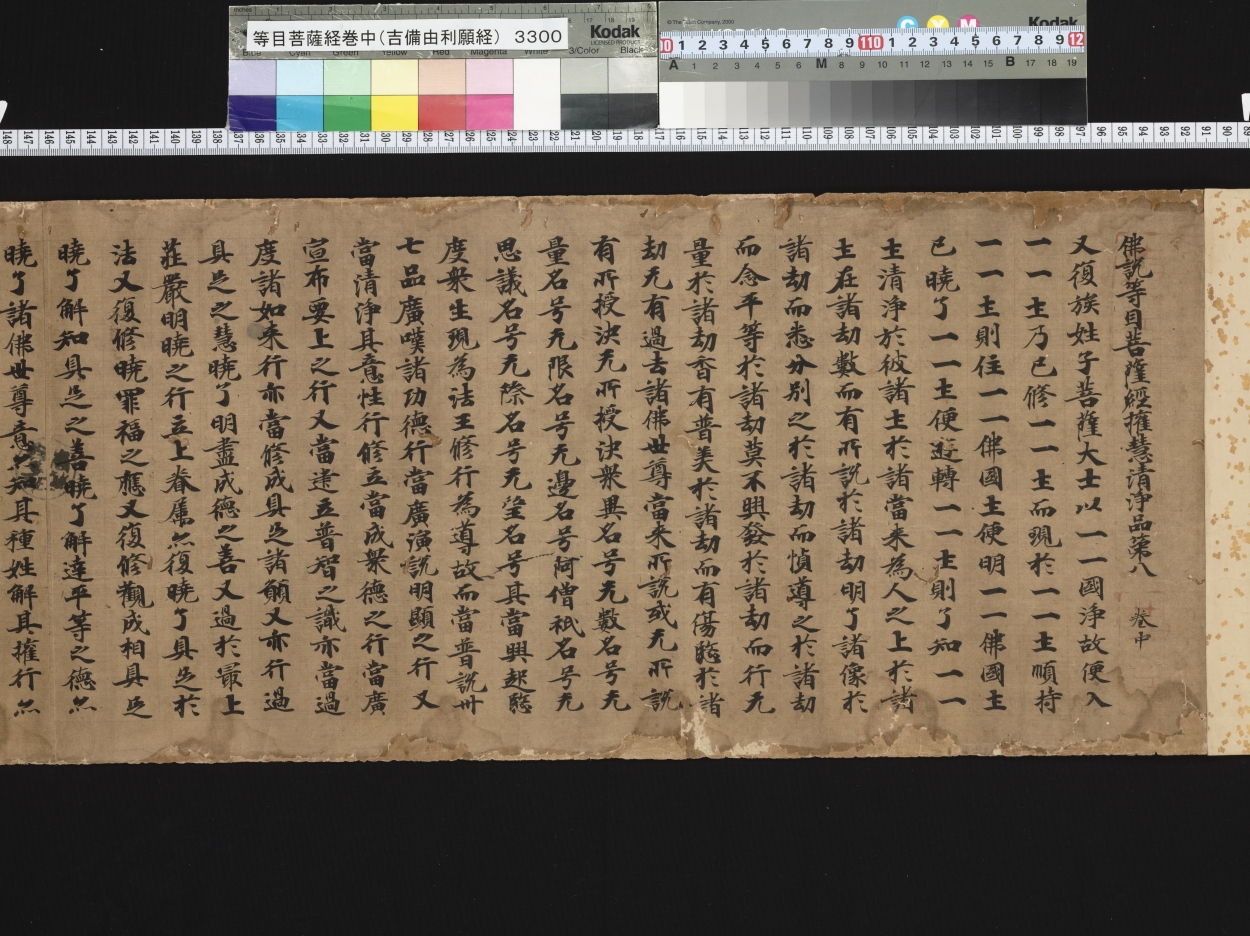 等目菩薩経巻中(吉備由利願経) 3300
Kodak
LICENSED PRODUCT
Black
3/Color
White
Magenta
Red
Yellow
Green
Cyan
Blue
© The Tiffen Company, 2000
Kodak
C Y M
1 2 3 4 5 6 7 8 9 110 1 2 3 4 5 6 7 8 9 12
A 1 2 3 4 5 6 M 8 9 10 11 12 13 14 15 B 17 18 19
148 147 146 145 144 143 142 141 140 139 138 137 136 135 134 133 132 131 130 129 128 127 126 125 124 123 122 121 120 119 118 117 116 115 114 113 112 111 110 109 108 107 106 105 104 103 102 101 100 99 98 97 96 95 94 93 92 91 90 89
佛説等目菩薩經攉慧清淨品第八 卷中
又復族姓子菩薩大士以一一國淨故便入
一一土乃已修一一土而現於一一土順持
一一土則住一一佛國土便明一一佛國土
已曉了一一土便遊轉一一土則了知一一
土清淨於彼諸土於諸當来為人之上於諸
土在諸劫數而有所説於諸劫明了諸像於
諸劫而悉分別之於諸劫而愼導之於諸劫
而念平等於諸劫莫不興發於諸劫而行无
量於諸劫杳有普美於諸劫而有傷愍於諸
劫无有過去諸佛世尊當来所説或无所説
有所授決无所授決衆異名号无數名号无
量名号无限名号无邊名号阿僧祇名号无
思議名号无際名号无望名号其當興起愍
度衆生現為法王修行為導故而當普説卅
七品廣嘆諸功德行當廣演説明顯之行又
當清淨其意性行修立當成衆德之行當廣
宣布要上之行又當逮立普智之識亦當過
度諸如来行亦當修成具足諸願又亦行過
具足之慧曉了明盡成德之善又過於最上
莊嚴明曉之行立上眷屬然復曉了具足於
法又復修曉罪福之應又復修觀成相具足
曉了解知具足之善曉了解達平等之德然
曉了諸佛世尊意然知其種姓解具攉行然